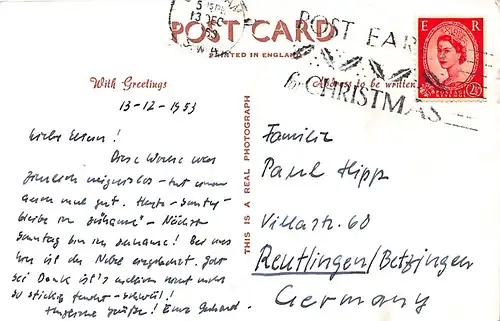 POST CARD
PRINTED IN ENGLAND
With Greetings
Address to be written
POST EAR
for CHRISTMAS
13 DEC
S.W.
E R
POSTAGE REVENUE
2½
THIS IS A REAL PHOTOGRAPH
13-12-1953
Liebe Eltern!
Diese Woche war
ziemlich ereignislos - tut einem
auch mal gut. Heute - Sonntag -
bleibe ich "zuhause" - Nächst
Sonntag bin ich zuhause! Bei uns
hier ist der Nebel Gott
sei Dank ist's nicht mehr
so
Herzliche Grüße! Euer Gerhard.
Familie
Paul Hipp
Villastr. 60
Reutlingen/Betzingen
Germany